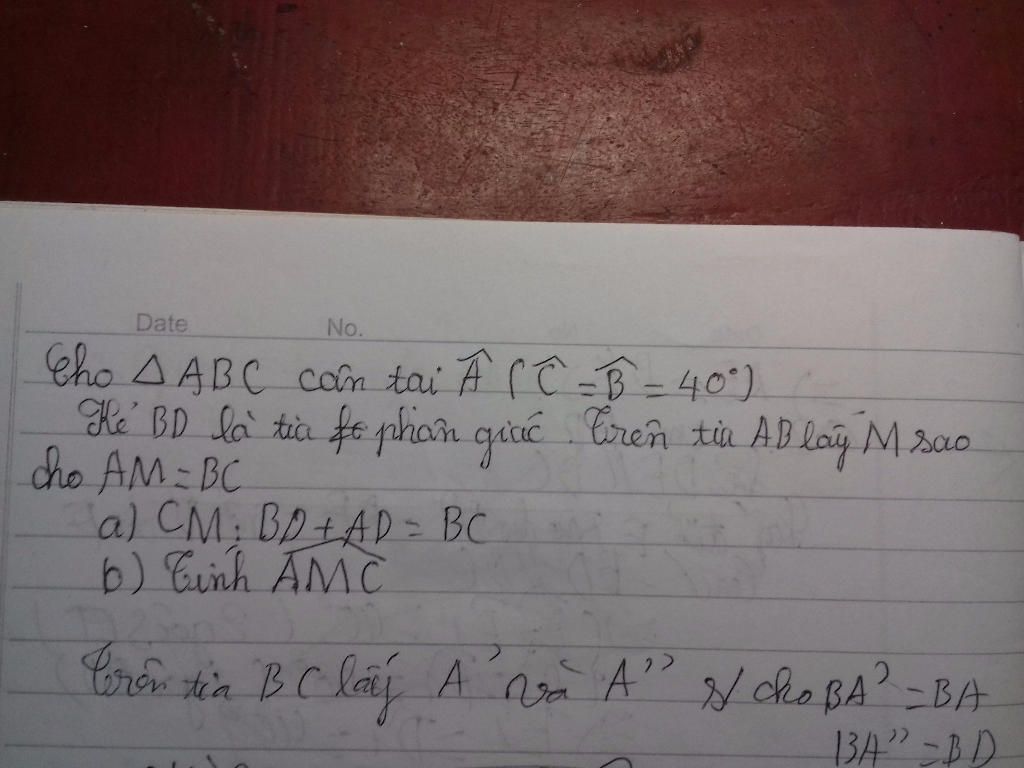 Date No.
Cho △ ABC cân tại Â (Ĉ = B̂ = 40°)
Kẻ BD là tia phân giác. Trên tia AB lấy M sao
cho AM = BC
a) CM: BD + AD = BC
b) Tính AMC
Trên tia BC lấy A' và A'' s/ cho BA' = BA
BA'' = BD